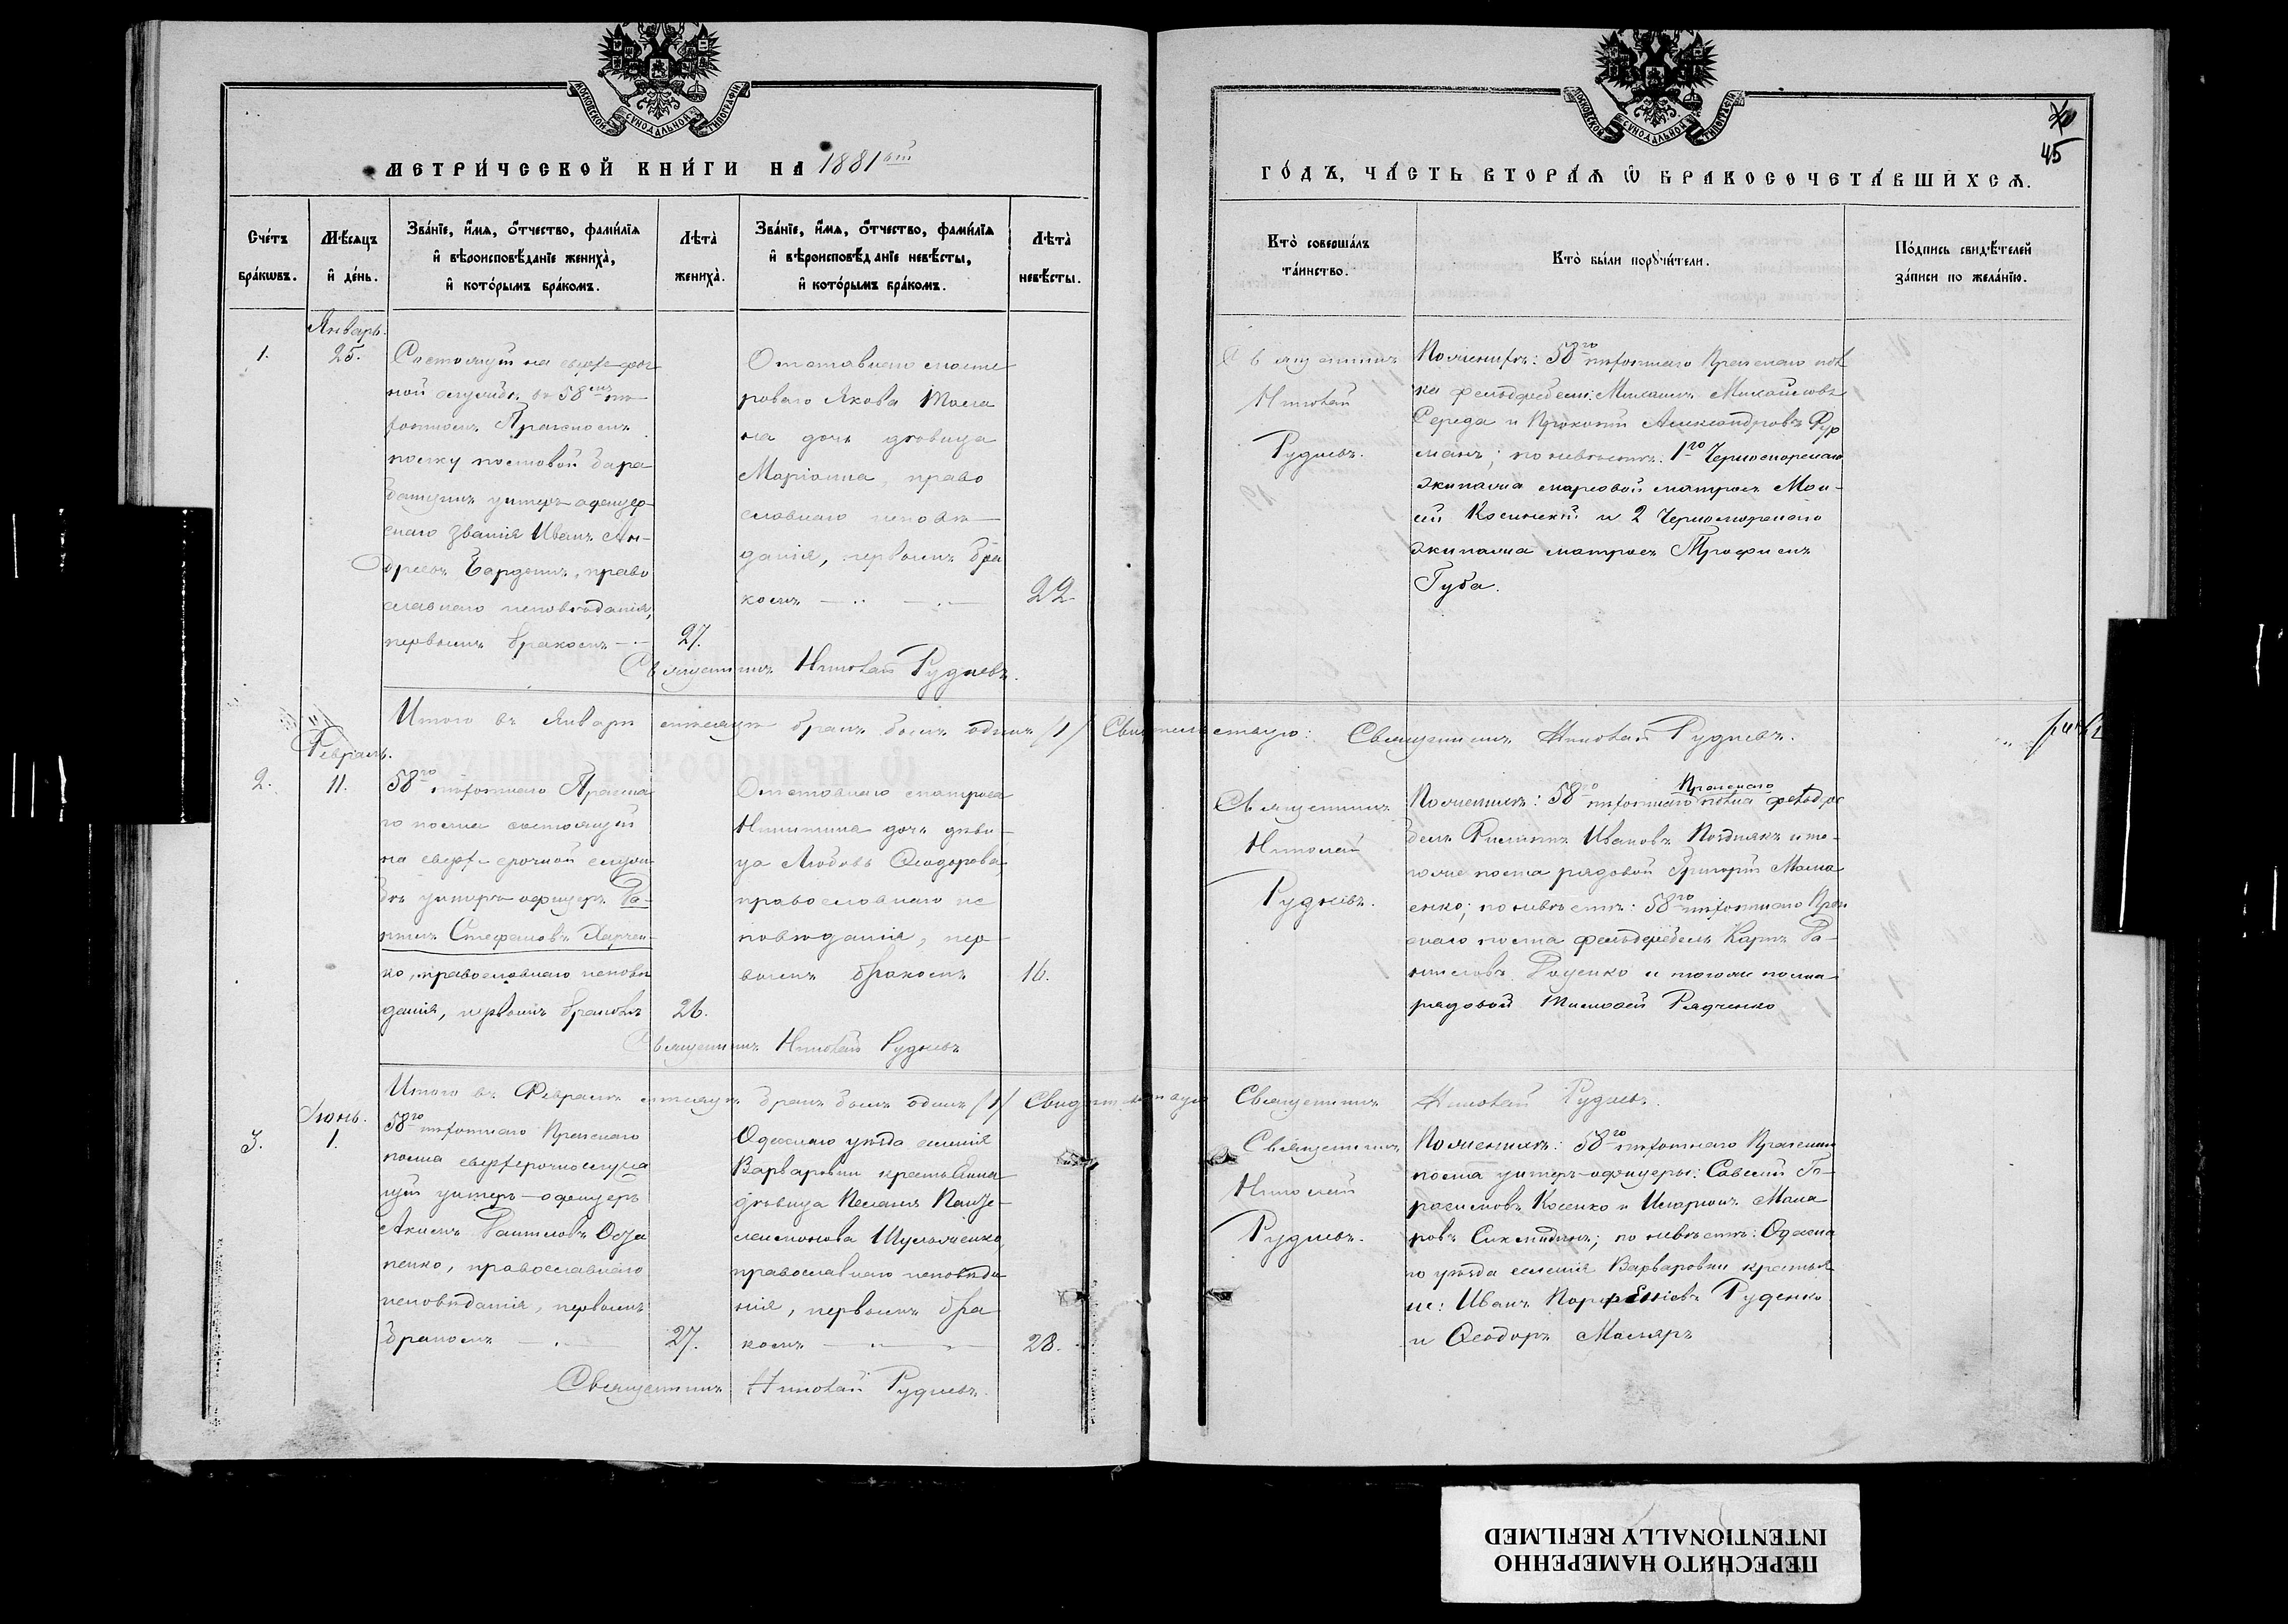 МОСКОВСКОЙ СѴНОДАЛЬНОЙ ТИПОГРАФІИ
МЕТРИ́ЧЕСКОЙ КНИ́ГИ НА 1881 ый
Сче́тъ бра́кѡвъ.
Мѣ́сяцъ и҆ де́нь.
Зва́нїе, и҆́мѧ, ѻ҆́тчество, фами́лїѧ
и҆ вѣроисповѣ́данїе жениха̀,
и҆ кото́рымъ бра́комъ.
Лѣта̀ жениха̀.
Зва́нїе, и҆́мѧ, ѻ҆́тчество, фами́лїѧ
и҆ вѣроисповѣ́данїе невѣ́сты,
и҆ кото́рымъ бра́комъ.
Лѣта̀ невѣ́сты.
Январь.
1.
25.
Состоящій на сверхсроч
ной службѣ въ 58мъ пѣ
хотномъ Пражскомъ
полку полковой бара
банщикъ унтеръ-офицер
скаго званія Иванъ Ан-
дреевъ право
славнаго исповѣданія,
первымъ бракомъ
27.
Отставнаго
роваго Якова
на дочь дѣвица
Маріанна, право
славнаго исповѣ
данія, первымъ бра
комъ
22
Священникъ Николай Рудневъ.
Итого въ Январѣ мѣсяцѣ бракъ былъ одинъ /1/ Свидѣтельствую: Священникъ Николай Рудневъ.
Февраль.
2.
11.
58го пѣхотнаго Пражска
го полка состоящій
на сверхсрочной служ
бѣ унтеръ-офицеръ
Стефановъ Харчен-
ко, православнаго исповѣ
данія, первымъ бракомъ
26.
Отставнаго матроса
Никитина дочь дѣви-
ца Любовь Ѳеодорова,
православнаго ис
повѣданія, пер
вымъ бракомъ
16.
Священникъ Николай Рудневъ
Итого въ Февралѣ мѣсяцѣ бракъ былъ одинъ /1/ Свидѣтельствую Священникъ Николай Рудневъ.
Іюнь.
3.
1.
58го пѣхотнаго Пражскаго
полка сверхсрочнослужа
щій унтеръ-офицеръ
Акимъ Даниловъ
православнаго
исповѣданія, первымъ
бракомъ
27.
Одесскаго уѣзда селенія
Варваровки крестьянка
дѣвица Пелагія Панте-
леимонова
православнаго исповѣда
нія, первымъ бра
комъ
28.
Священникъ Николай Рудневъ.
МОСКОВСКОЙ СѴНОДАЛЬНОЙ ТИПОГРАФІИ
45
ГО́ДЪ, ЧА́СТЬ ВТОРА́Ѧ Ѡ҆ БРАКОСОЧЕТА́ВШИХСѦ.
Кто̀ соверша́лъ та́инство.
Кто̀ бы́ли порꙋчи́тели.
По́дпись свидѣ́телей за́писи по жела́нїю.
Священникъ
Николай
Рудневъ.
По женихѣ: 58го пѣхотнаго Пражскаго пол
ка фельдфебели: Михаилъ Михайловъ
Середа и Прокопій Александровъ Фур
манъ; по невѣстѣ: 1го Черноморскаго
экипажа марсовой матросъ Мои-
сей Косинскій и 2 Черноморскаго
экипажа матросъ Трофимъ
Губа.
Священникъ
Николай
Рудневъ.
По женихѣ: 58го пѣхотнаго Пражскаго полка фельдфе
бель Филиппъ Ивановъ Позднякъ и то-
гоже полка рядовой Григорій
по невѣстѣ: 58го пѣхотнаго Праж
скаго полка фельдфебель Карпъ Да-
ниловъ и тогоже полка
рядовой Тимофей Радченко
Священникъ
Николай
Рудневъ.
По женихѣ: 58го пѣхотнаго Пражскаго
полка унтеръ-офицеры: Савелій Ге-
расимовъ Косенко и Иларіонъ Мака
ровъ по невѣстѣ: Одесска
го уѣзда селенія Варваровки крестья
не: Иванъ Порфеніевъ Руденко
и Ѳеодоръ Маляръ
ПЕРЕСНЯТО НАМЕРЕННО
INTENTIONALLY REFILMED